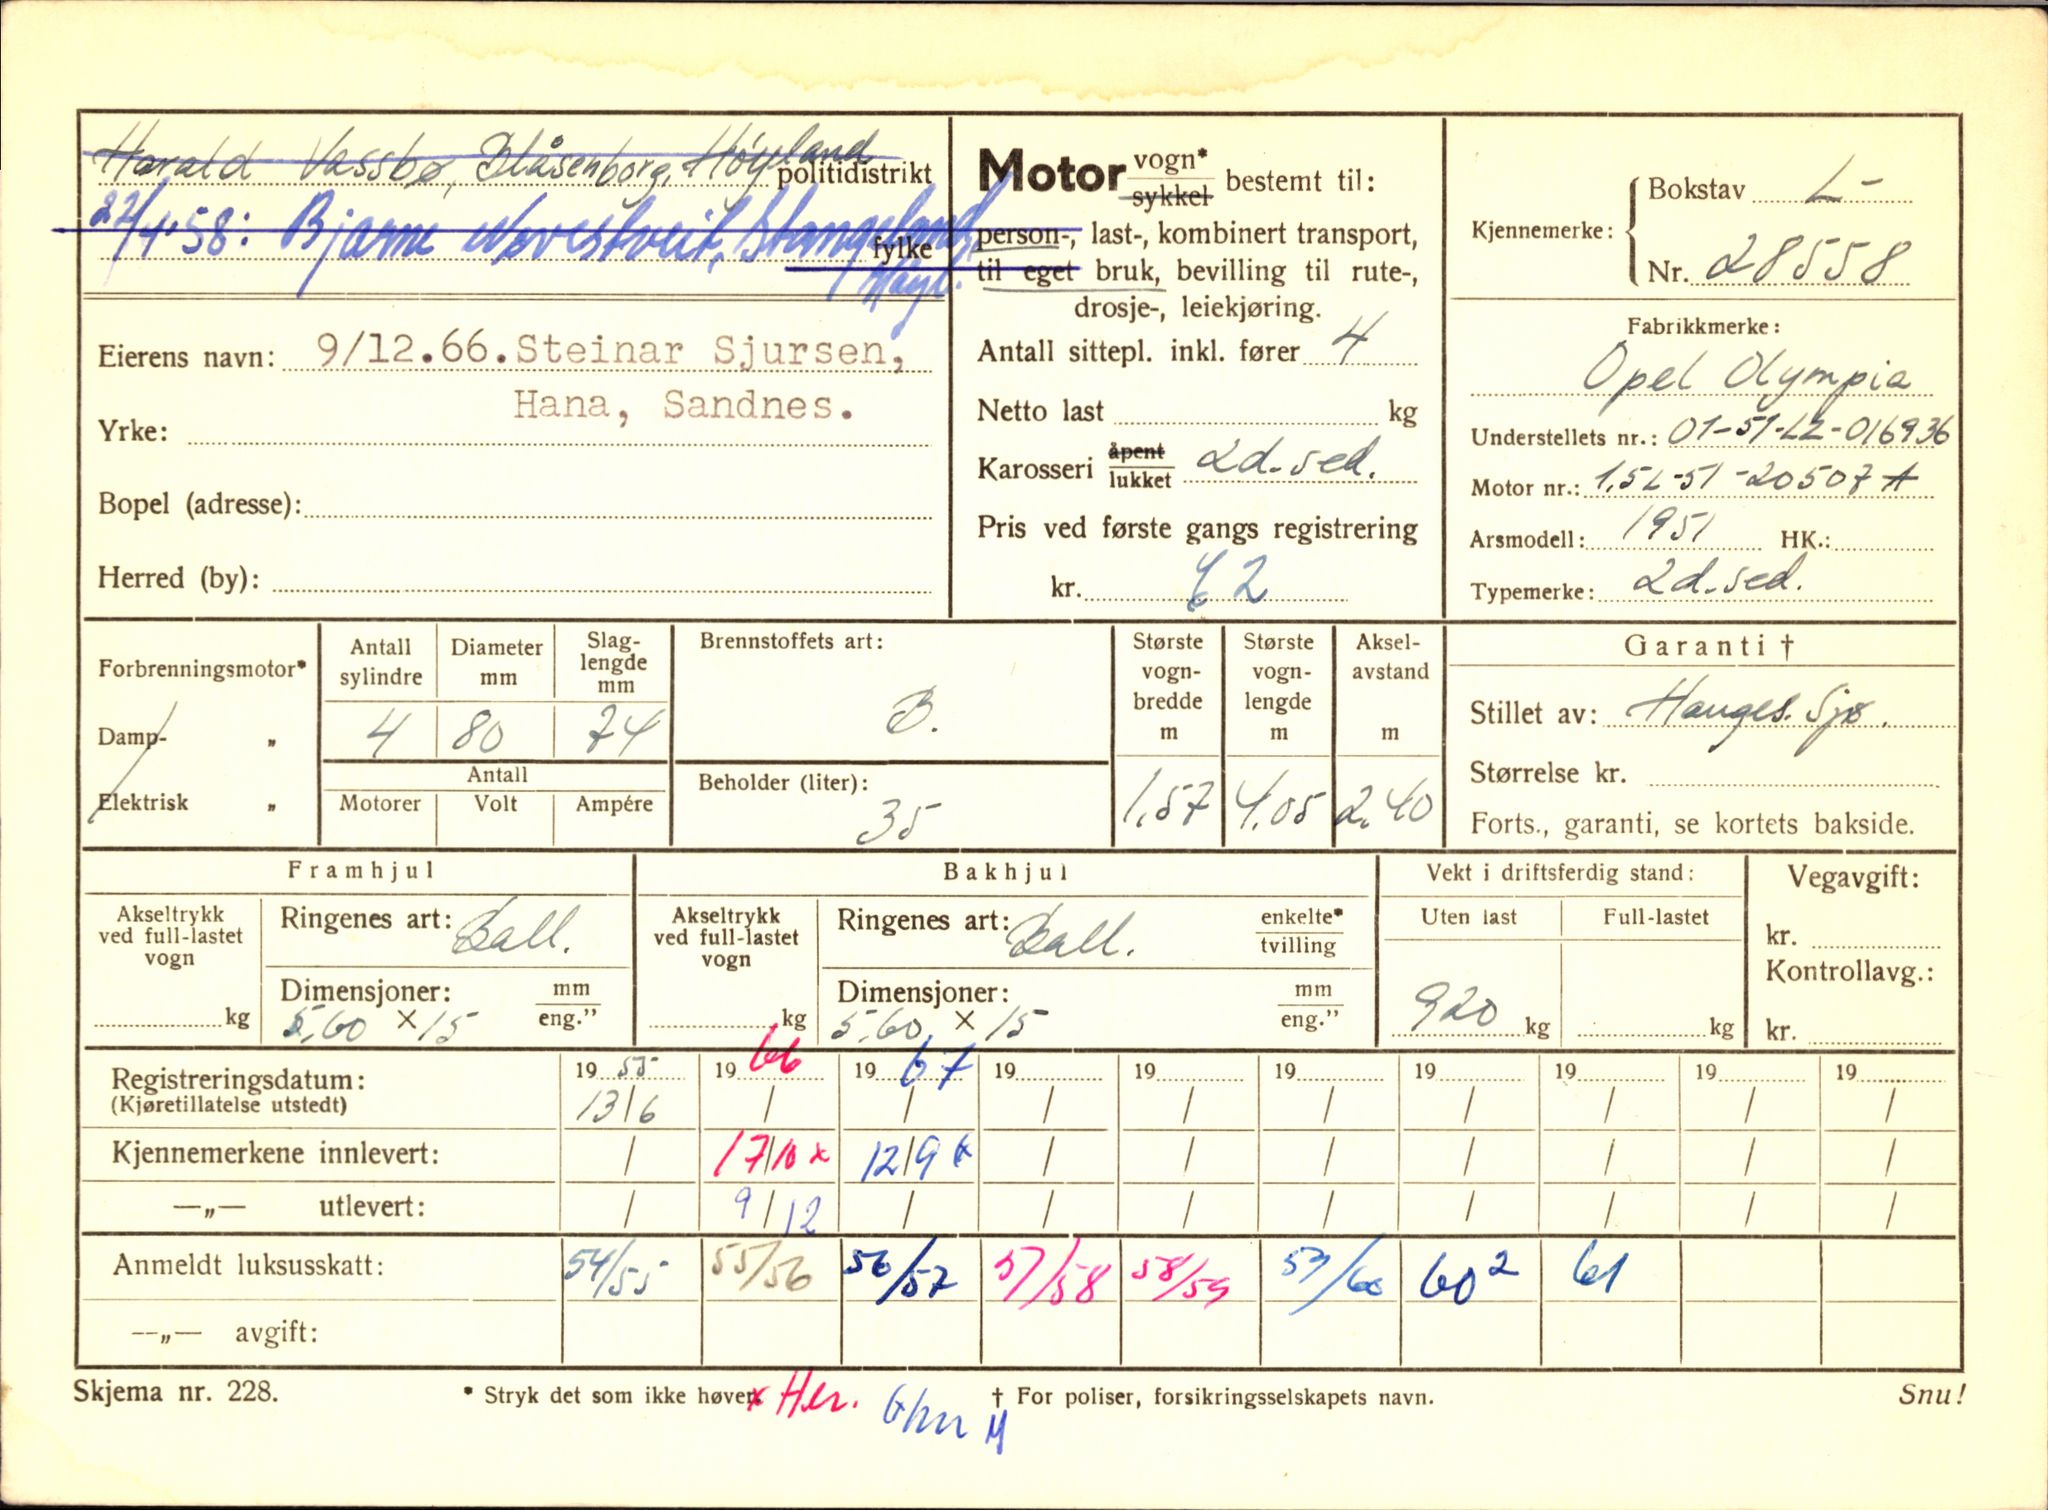 Harald Vassbø, Blåsenborg, Høyland politidistrikt
22/4.58: Bjarne Norestveit, Stangeland, fylke
Høyl.
Eierens navn: 9/12.66. Steinar Sjursen,
Hana, Sandnes.
Yrke:
Bopel (adresse):
Herred (by):
Motor vogn* sykkel bestemt til:
person-, last-, kombinert transport,
til eget bruk, bevilling til rute-,
drosje-, leiekjøring.
Antall sittepl. inkl. fører 4
Netto last kg
Karosseri åpent lukket 2d. sed.
Pris ved første gangs registrering
kr. 62
Kjennemerke: Bokstav L-
Nr. 28558
Fabrikkmerke:
Opel Olympia
Understellets nr.: 01-51-LZ-016936
Motor nr.: 1,5L-51-20507 A
Arsmodell: 1951 HK.:
Typemerke: 2d. sed.
Forbrenningsmotor*
Damp- „
Elektrisk „
Antall sylindre Diameter mm Slag-lengde mm
4 80 74
Antall
Motorer Volt Ampére
Brennstoffets art:
B.
Beholder (liter):
35
Største vogn-bredde m Største vogn-lengde m Aksel-avstand m
1,57 4,05 2,40
Garanti †
Stillet av: Hauges. Sjø.
Størrelse kr.
Forts., garanti, se kortets bakside.
Framhjul
Akseltrykk ved full-lastet vogn
kg
Ringenes art: Ball.
Dimensjoner: mm eng."
5,60 × 15
Bakhjul
Akseltrykk ved full-lastet vogn
kg
Ringenes art: Ball. enkelte* tvilling
Dimensjoner: mm eng."
5,60 × 15
Vekt i driftsferdig stand:
Uten last Full-lastet
920 kg kg
Vegavgift:
kr.
Kontrollavg.:
kr.
Registreringsdatum: 19 55 19 66 19 67 19 19 19 19 19 19 19
(Kjøretillatelse utstedt) 13/6 / / / / / / / / /
Kjennemerkene innlevert: / 17/10 x 12/9 x / / / / / / /
—„— utlevert: / 9/12 / / / / / / / /
Anmeldt luksusskatt: 54/55 55/56 56/57 57/58 58/59 59/60 60² 61
—„— avgift:
Skjema nr. 228. * Stryk det som ikke høver. x Her. † For poliser, forsikringsselskapets navn. Snu!